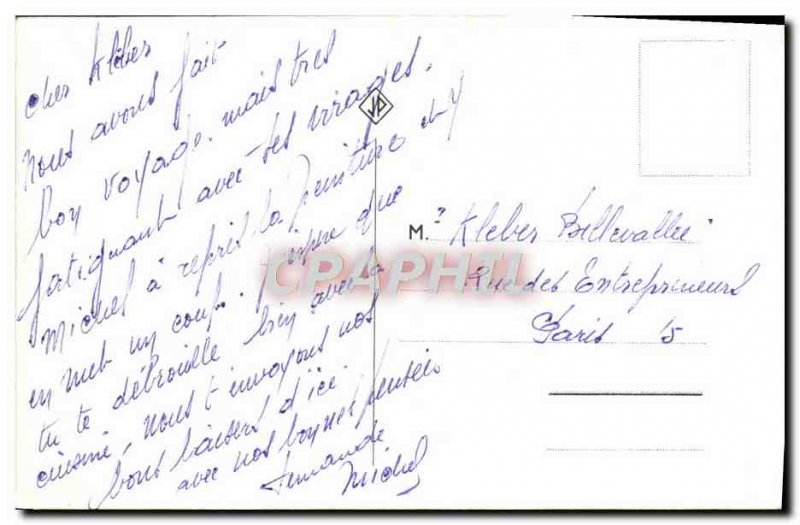 cher Kléber
nous avons fait
bon voyage. mais tres
fatiguant avec ses virages.
Michel à repris la peinture et y
en met un coup. J'espere que
tu te débrouille bien avec la
cuisine, nous t'envoyons nos
bons baisers d'ici
avec nos bonnes pensées
Fernande
Michel
JP
M. Kleber Bellevallée
Rue des Entrepreneurs
Paris 15
CPAPHIL